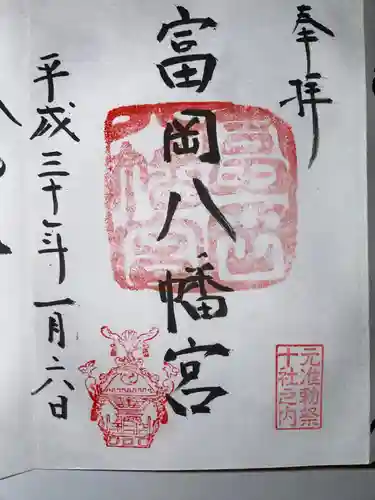 奉拝
富岡八幡宮
平成三十年一月六日
元准勅祭
十社之内